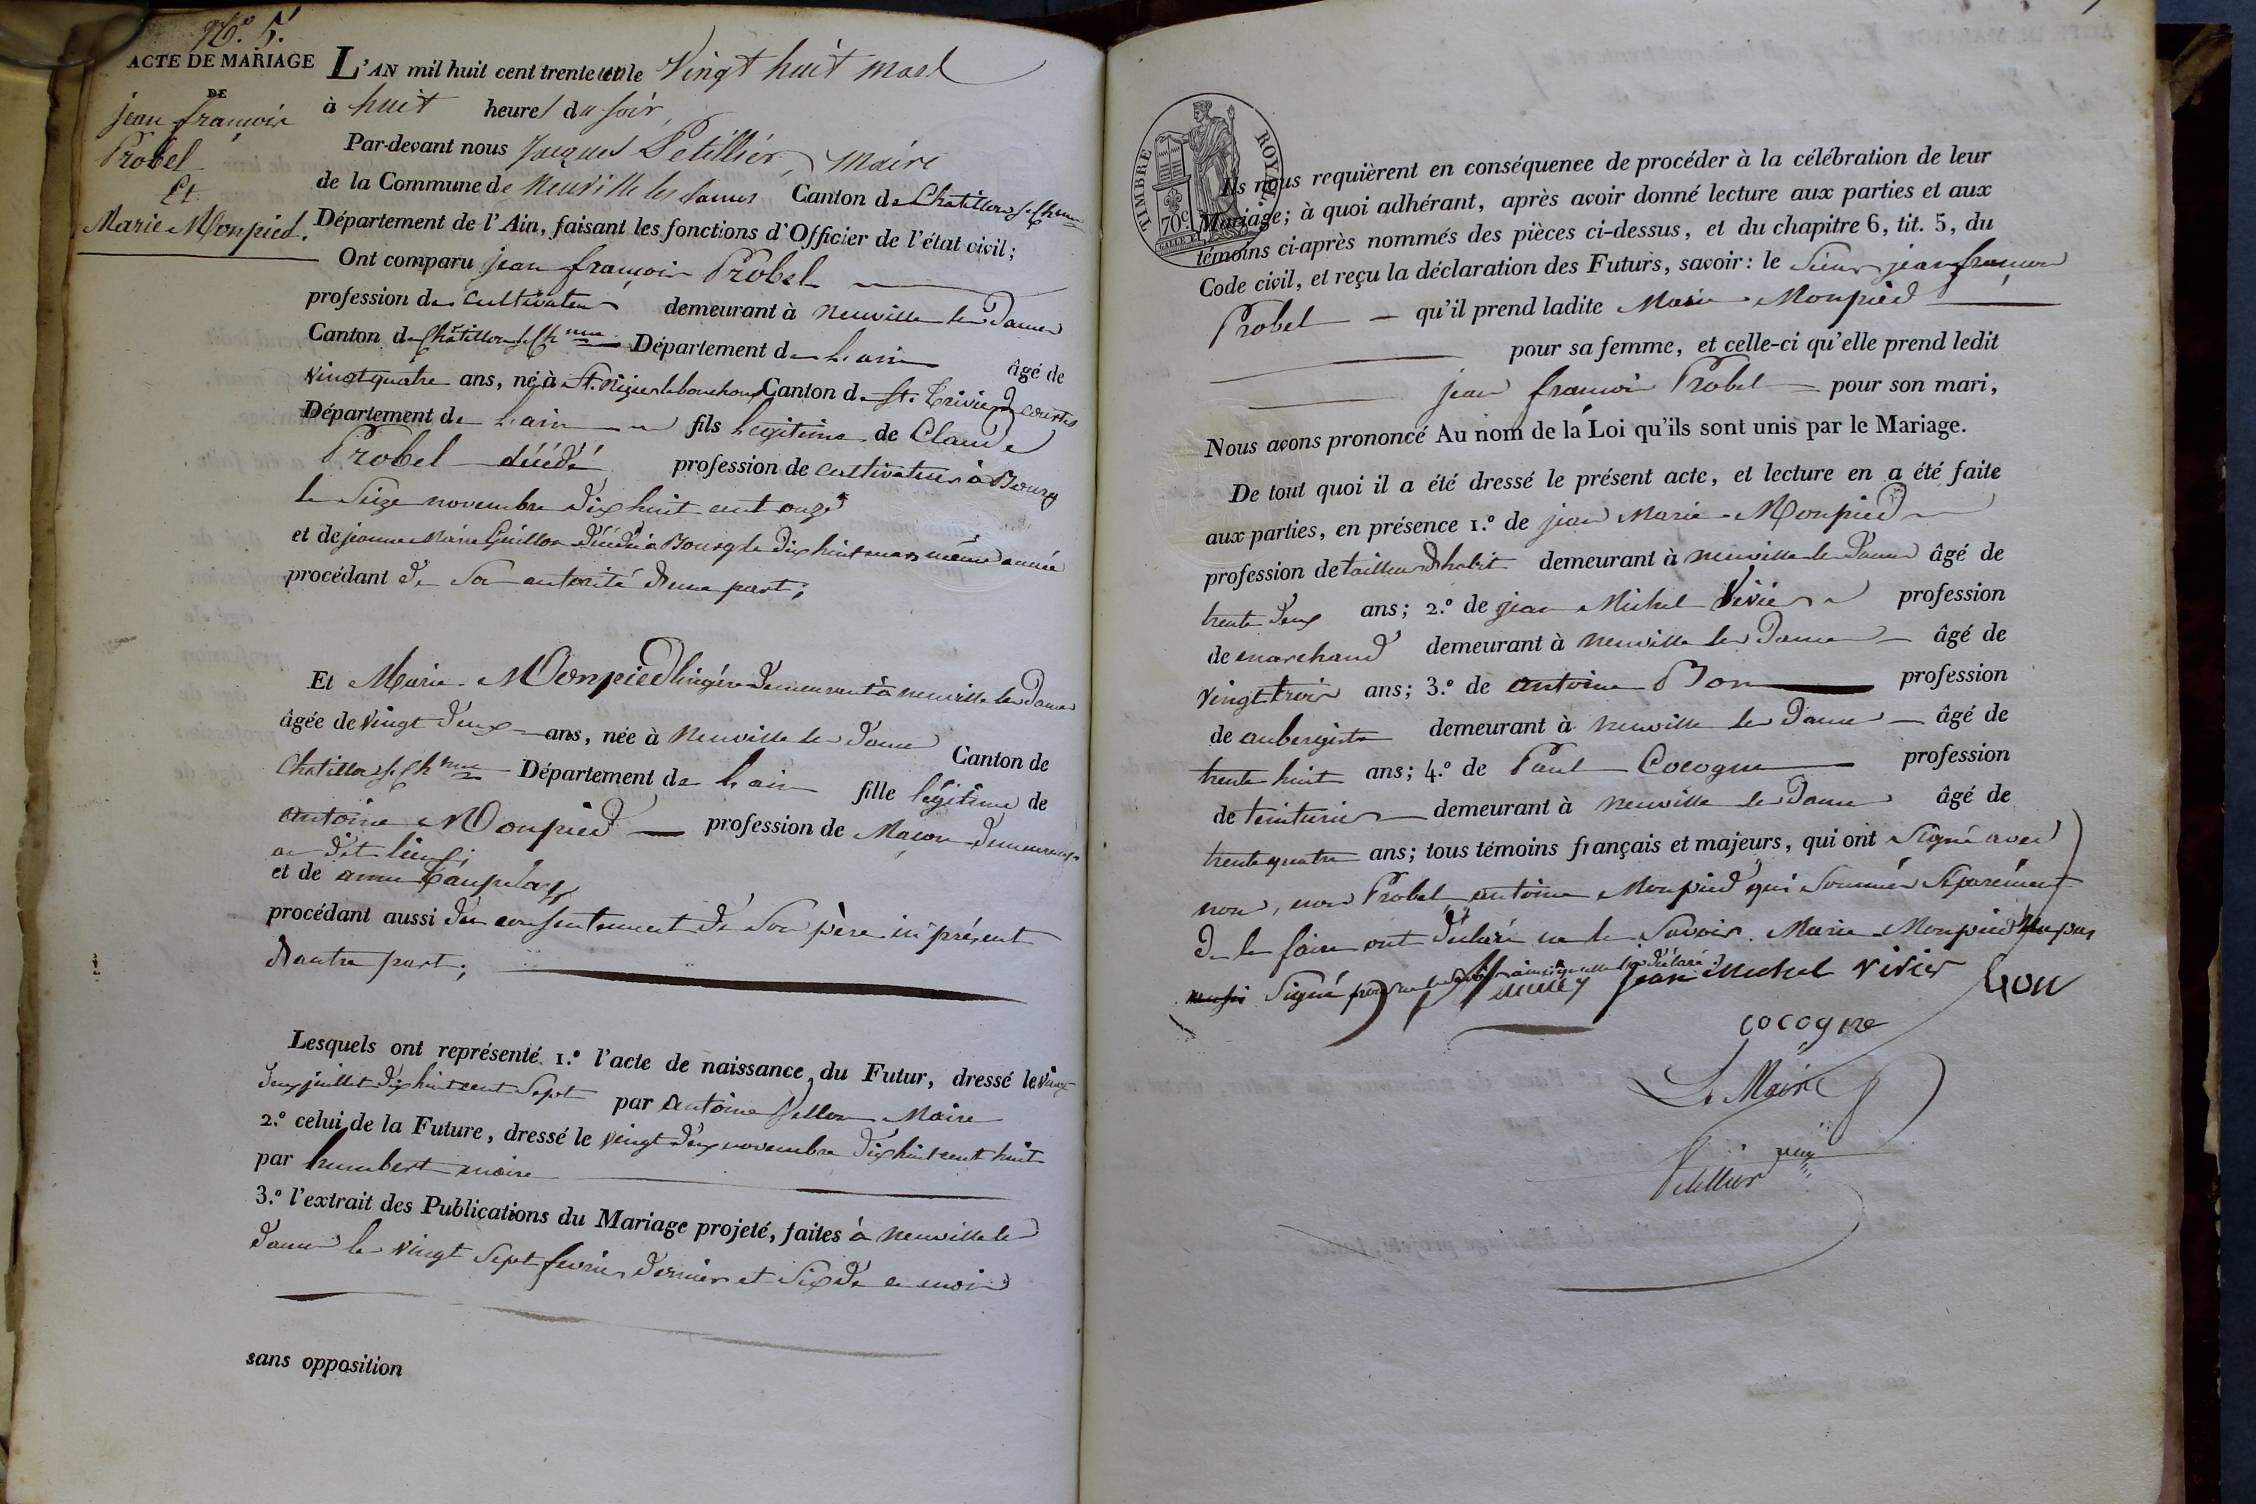 N.° 5.
ACTE DE MARIAGE
DE
jean françois
Probel
Et
Marie Monpied.
L'AN mil huit cent trente un le Vingt huit mars
à huit heures du soir,
Par-devant nous Jacques Petillier, Maire
de la Commune de Neuville les Dames Canton de Chatillon s. Ch.nne
Département de l'Ain, faisant les fonctions d'Officier de l'état civil;
Ont comparu jean françois Probel
profession de cultivateur demeurant à neuville les Dames
Canton de Châtillon s. Ch.nne Département de l'ain âgé de
vingt quatre ans, né à St. Nizier le bouchoux Canton de St. Trivier de courtes
Département de l'ain fils légitime de Claude
Probel décédé profession de cultivateur à Bourg
le seize novembre dix huit cent onze
et de jeanne Marie Guillon décédée à Bourg le dix huit mars même année
procédant de son autorité d'une part;
Et Marie Monpied lingère demeurant à neuville les Dames
âgée de vingt deux ans, née à Neuville les Dames Canton de
Chatillon s. Ch.nne Département de l'ain fille légitime de
antoine Monpied profession de Maçon demeurant
au dit lieu;
et de anne
procédant aussi du consentement de son père ici présent
d'autre part;
Lesquels ont représenté 1.° l'acte de naissance du Futur, dressé le vingt
deux juillet dix huit cent sept par Antoine Maire
2.° celui de la Future, dressé le vingt deux novembre dix huit cent huit
par humbert maire
3.° l'extrait des Publications du Mariage projeté, faites à neuville les
Dames le vingt sept fevrier dernier et six de ce mois
sans opposition
TIMBRE ROYAL
70 c.
Ils nous requièrent en conséquence de procéder à la célébration de leur
Mariage; à quoi adhérant, après avoir donné lecture aux parties et aux
témoins ci-après nommés des pièces ci-dessus, et du chapitre 6, tit. 5, du
Code civil, et reçu la déclaration des Futurs, savoir: le Sieur jean françois
Probel qu'il prend ladite Marie Monpied
pour sa femme, et celle-ci qu'elle prend ledit
jean françois Probel pour son mari,
Nous avons prononcé Au nom de la Loi qu'ils sont unis par le Mariage.
De tout quoi il a été dressé le présent acte, et lecture en a été faite
aux parties, en présence 1.° de jean Marie Monpied
profession de tailleur d'habit demeurant à neuville les Dames âgé de
trente deux ans; 2.° de jean Michel Vivier profession
de marchand demeurant à neuville les Dames âgé de
vingt trois ans; 3.° de antoine Bon profession
de aubergiste demeurant à neuville les Dames âgé de
trente huit ans; 4.° de Paul Cocogne profession
de teinturier demeurant à neuville les Dames âgé de
trente quatre ans; tous témoins français et majeurs, qui ont signé avec
nous, non Probel, antoine Monpied qui sommés séparément
de le faire ont déclaré ne le savoir. Marie Monpied n'a pas
signé pour ne le savoir ainsi qu'elle l'a déclaré.
jean michel vivier Bon
cocogne
Le Maire
Petillier